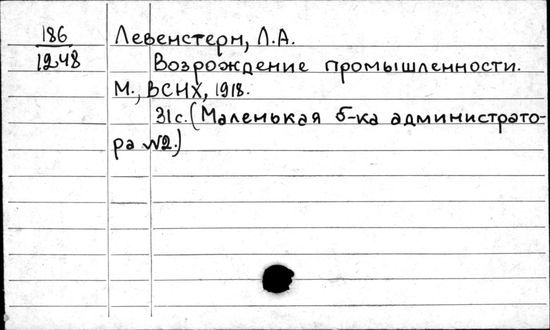 186 Левенстерн, Л.А.
1248 Возрождение промышленности.
М., ВСНХ, 1918.
31с. (Маленькая б-ка администрато-
ра №2.)